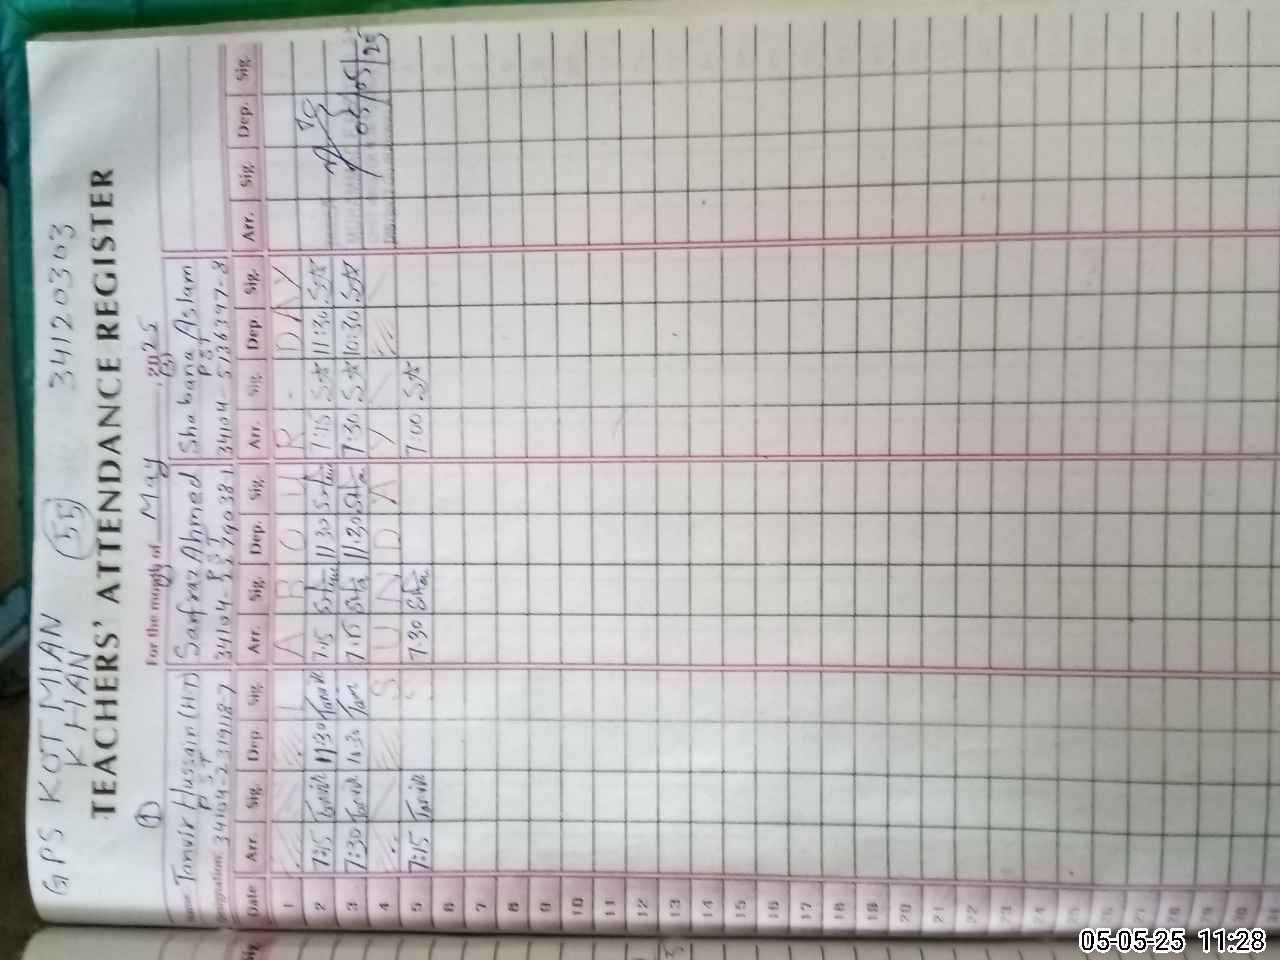 GPS KOT MIAN KHAN (55) 34120303
TEACHERS' ATTENDANCE REGISTER
For the month of May 2025
(1) (3)
Name Tanvir Hussain (HT) Sarfraz Ahmed Shabana Aslam
Designation PST PST PST
34104-2319118-7 34104-5336397-8
Date Arr. Sig. Dep. Sig. Arr. Sig. Dep. Sig. Arr. Sig. Dep. Sig. Arr. Sig. Dep. Sig.
1 LABOUR DAY
2 7:15 Tanvir 11:30 Tanvir 7:15 11:30 7:15 11:30
3 7:30 Tanvir 7:15 11:30 7:30 10:30
4 SUNDAY
5 7:15 Tanvir 7:30 7:00
05/05/25
6
7
8
9
10
11
12
13
14
15
16
17
18
19
20
21
22
23
24
25
26
27
28
29
30
Sig
05-05-25 11:28